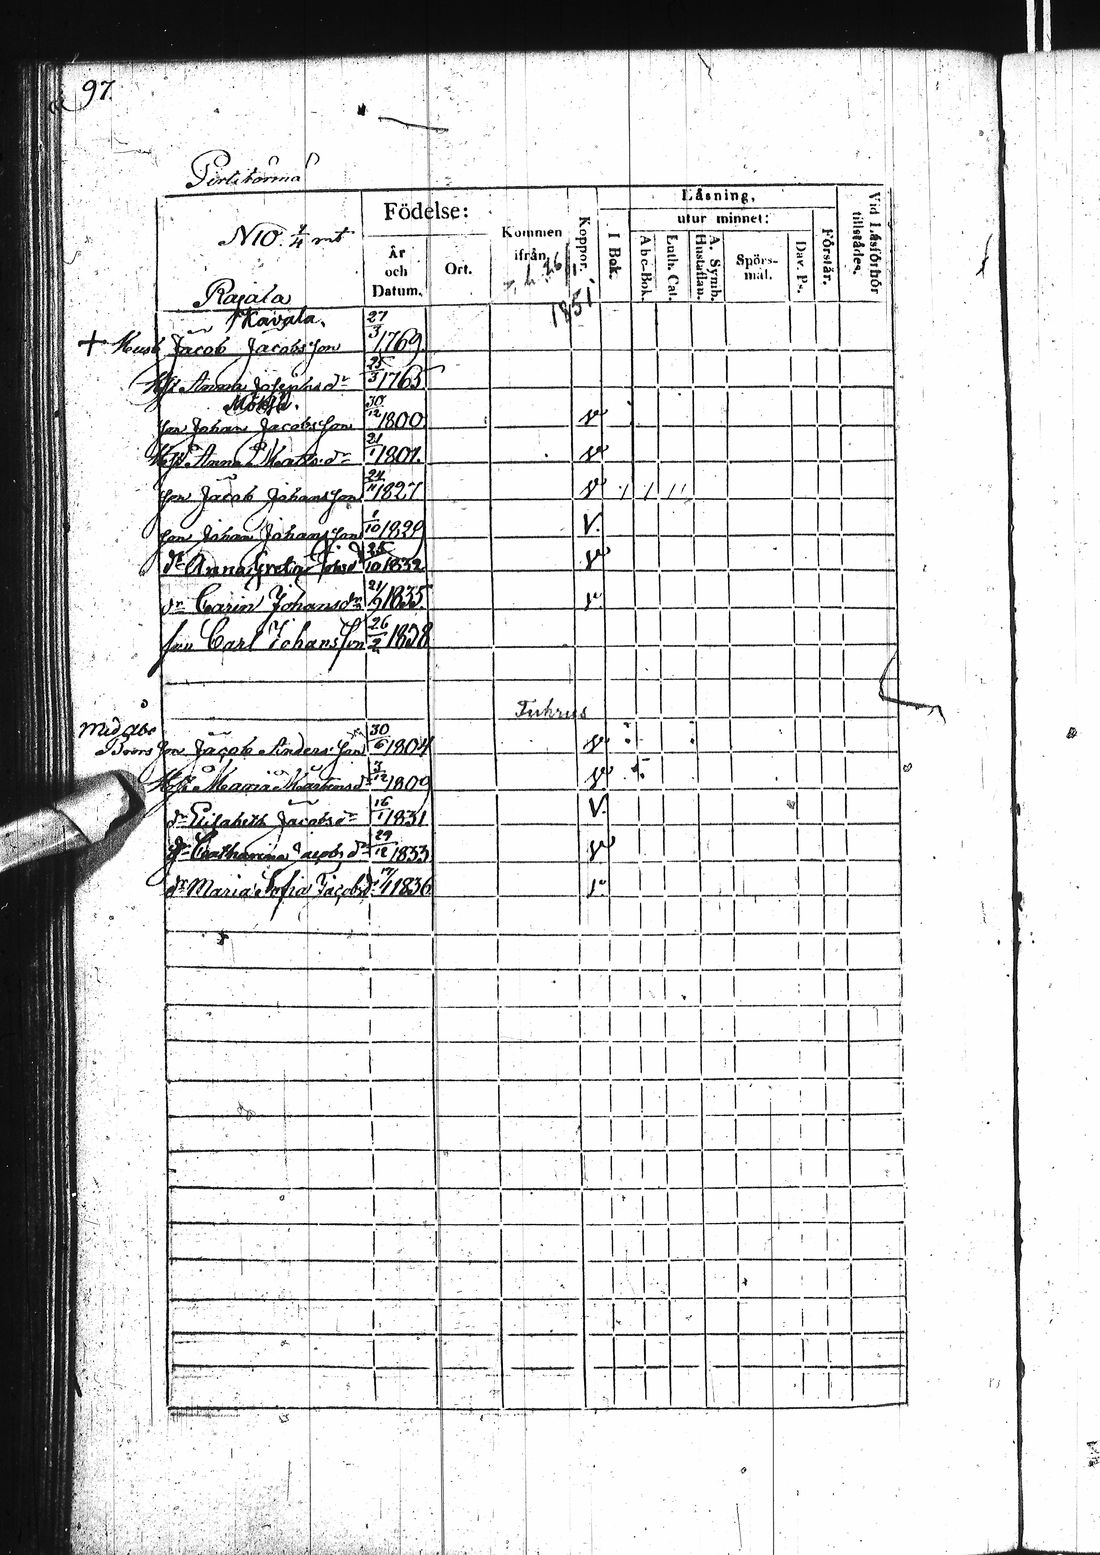 97.
Födelse:
Läsning,
utur minnet:
N10. 1/4 mt
Kommen ifrån
Koppor.
I Bok.
Abc-Bok.
Luth. Cat.
A. Symb. Hustaflan.
Spörsmål.
Dav. Ps.
Förstår.
Vid Läsförhör tillstädes.
År och Datum.
Ort.
Rajala
1851
Kavala.
+ Husb Jacob Jacobsson 27/3 1769.
Hst Anna Josephsdr 25/3 1765
Son Johan Jacobsson 30/12 1800 v
Hst Anna Mattsdr 21/1 1801. v
Son Jacob Johansson 24/11 1827 v / / //
Son Johan Johansson 1/10 1829 V.
dr Anna Greta 25/10 1832 v
dr Carin Johansdr 21/9 1835. v
Son Carl Johansson 26/2 1838
Med Åbo
Son Jacob Andersson 30/6 1804 v
Hst Maria Mårtensdr 3/12 1809 v
dr Elisabeth Jacobsdr 16/1 1831 V.
dr Catharina Jacobsdr 29/12 1833 v
dr Maria Sofia Jacobsdr 17/1 1836 v